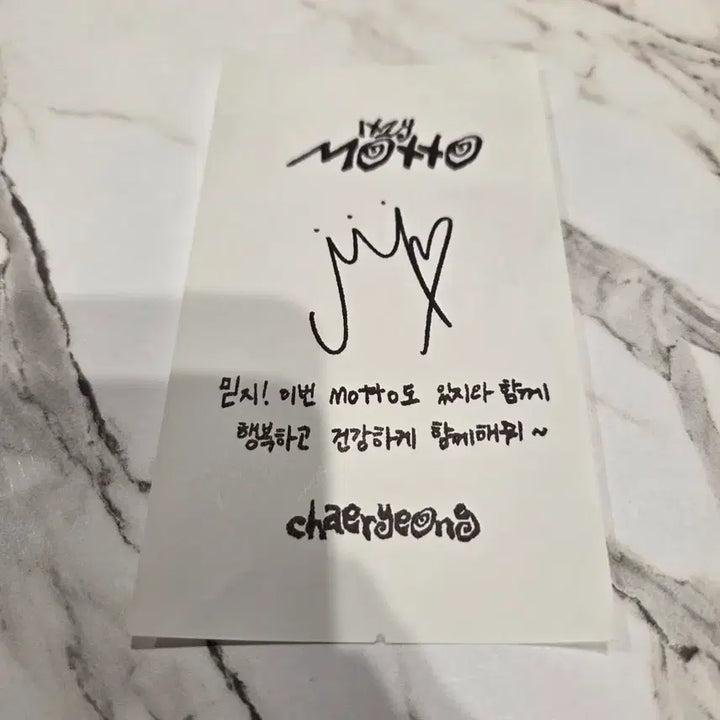 ITZY
MOTTO
믿지! 이번 MOTTO도 있지와 함께
행복하고 건강하게 함께해위 ~
chaeryeong